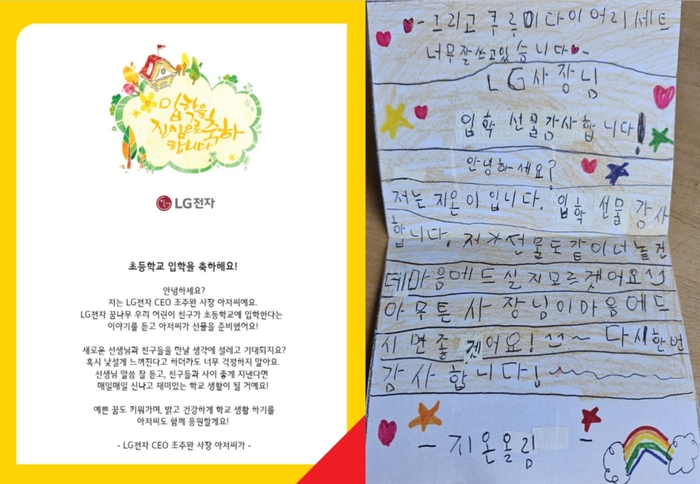 입학을
진심으로 축하
합니다
LG전자
초등학교 입학을 축하해요!
안녕하세요?
저는 LG전자 CEO 조주완 사장 아저씨예요.
LG전자 꿈나무 우리 어린이 친구가 초등학교에 입학한다는
이야기를 듣고 아저씨가 선물을 준비했어요!
새로운 선생님과 친구들을 만날 생각에 설레고 기대되지요?
혹시 낯설게 느껴진다고 하더라도 너무 걱정하지 말아요.
선생님 말씀 잘 듣고, 친구들과 사이 좋게 지낸다면
매일매일 신나고 재미있는 학교 생활이 될 거예요!
예쁜 꿈도 키워가며, 밝고 건강하게 학교 생활 하기를
아저씨도 함께 응원할게요!
- LG전자 CEO 조주완 사장 아저씨가 -
- 그리고 쿠루미다이어리세트
너무잘쓰고있습니다
LG사장님
입학 선물감사합니다!
안녕하세요?
저는 지온이입니다. 입학 선물 감사
합니다. 저 선물도 같이너놀건
데마음에드실지모르겟어요
아무튼 사장님이마음에드
시면좋겠어요! ~ 다시한번
감사합니다!
- 지온올림 -